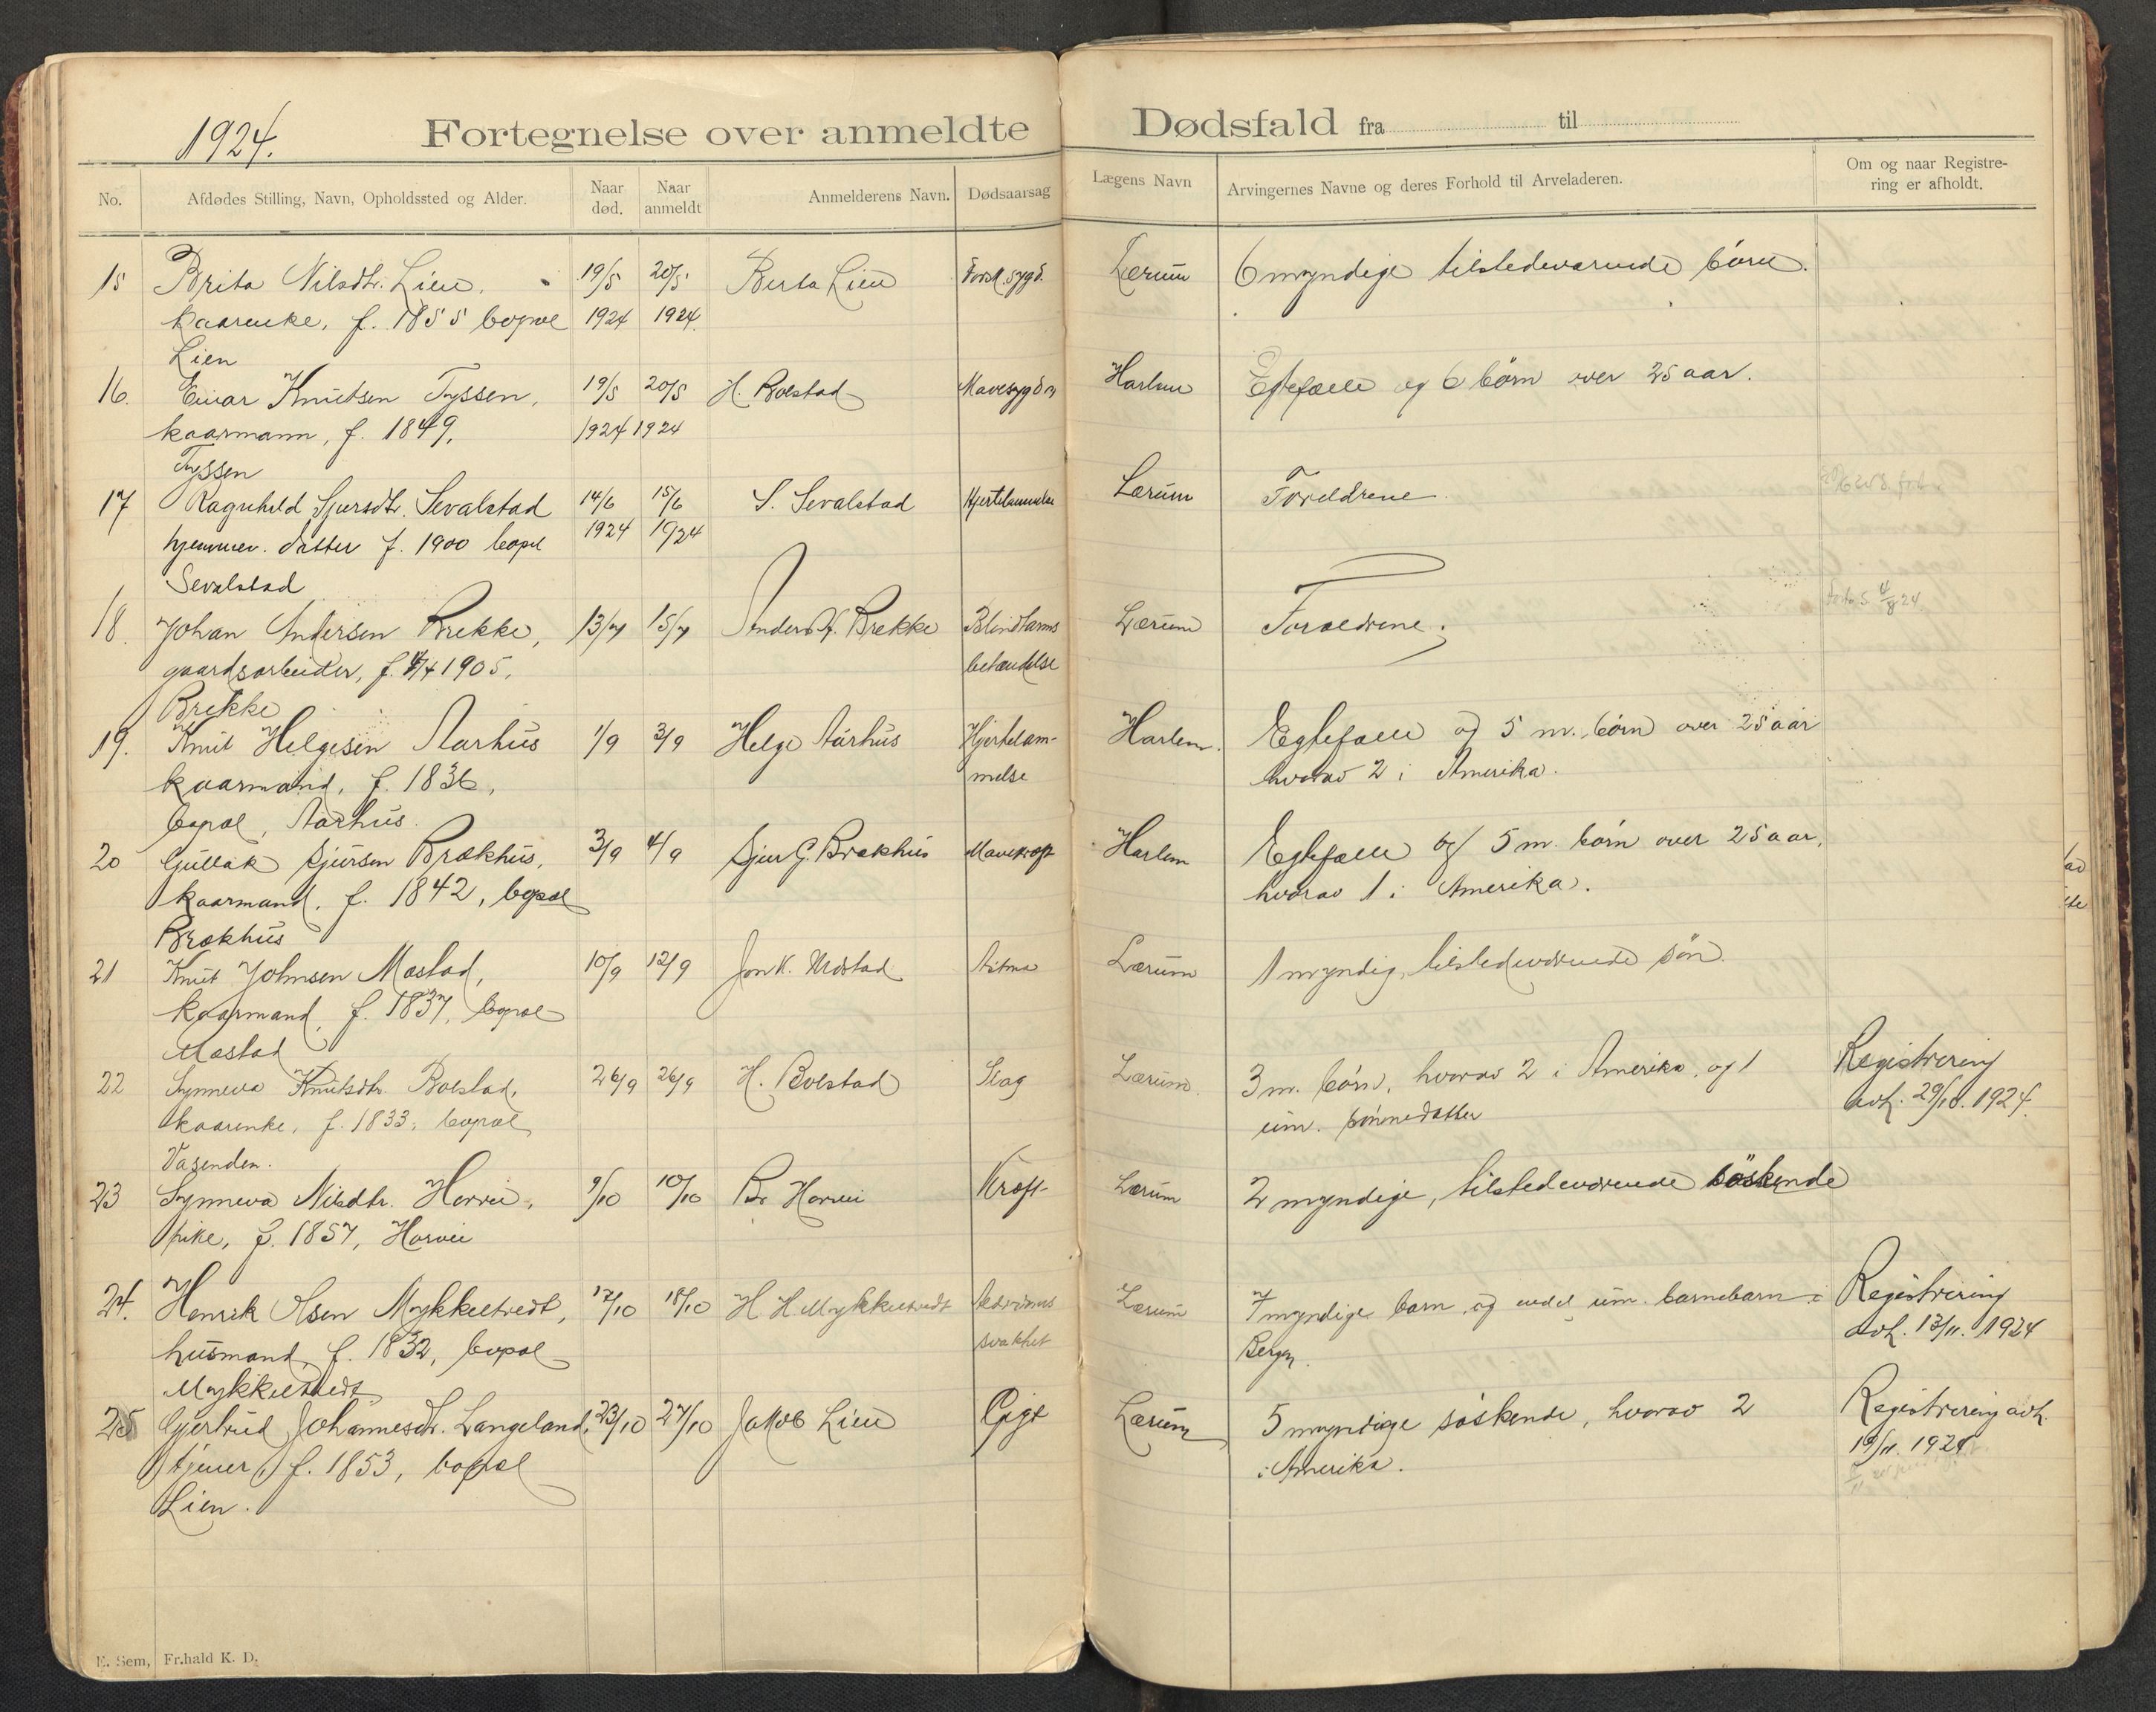 1924.
Fortegnelse over anmeldte Dødsfald fra til
No. Afdødes Stilling, Navn, Opholdssted og Alder. Naar død. Naar anmeldt Anmelderens Navn. Dødsaarsag Lægens Navn Arvingernes Navne og deres Forhold til Arveladeren. Om og naar Registrering er afholdt.
15 Brita Nilsdtr. Lien, 19/5 20/5 Berta Lien Lærum 6 myndige tilstedeværende børn.
kaarenke, f. 1855 bopæl 1924 1924
Lien
16. Einar Knutsen Tyssen, 19/5 20/5 H. Bolstad Mavesygdom Harlem Egtefælle og 6 børn over 25 aar.
kaarmann, f. 1849, 1924 1924
Tyssen
17 Ragnhild Sjursdtr. Sevalstad 14/6 15/6 S. Sevalstad Hjertelammelse Lærum Foreldrene
hjemmev. datter f. 1900 bopæl 1924 1924
Sevalstad
18. Johan Andersen Brekke, 13/7 15/7 Anders J. Brekke Blindtarms Lærum Forældrene.
gaardsarbeider, f. 4/4 1905, betændelse
Brekke
19. Knut Helgesen Aarhus 1/9 3/9 Helge Aarhus Hjertelam- Harlem. Egtefælle og 5 m. børn over 25 aar
kaarmand, f. 1836, melse hvorav 2 i Amerika.
bopæl, Aarhus.
20 Gullak Sjursen Brækhus, 3/9 4/9 Sjur G. Brækhus Mavekræft Harlem Egtefælle og 5 m. børn over 25 aar,
kaarmand, f. 1842, bopæl hvorav 1 i Amerika.
Brækhus
21 Knut Johnsen Mæstad, 10/9 12/9 Jon K. Mæstad Astma Lærum 1 myndig, tilstedeværende søn.
kaarmand, f. 1837, bopæl
Mæstad
22 Synneva Knutsdtr. Bolstad, 26/9 26/9 H. Bolstad Slag Lærum. 3 m. børn, hvorav 2 i Amerika, og 1 Registrering
kaarenke, f. 1833, bopæl um. sønnedatter avh. 29/10. 1924.
Vasenden.
23 Synneva Nilsdtr. Horvei, 9/10 10/10 Br. Horvei Kræft Lærum 2 myndige, tilstedeværende søskende
pike, f. 1857, Horvei
24. Henrik Olsen Mykkeltvedt, 17/10 18/10 H H Mykkeltvedt Alderdoms Lærum 7 myndige barn og endel um. barnebarn i Registrering
husmand, f. 1832, bopæl svakhet Bergen. avh. 13/11. 1924
Mykkeltvedt
25 Gjertrud Johannesdtr. Langeland, 23/10 27/10 Jakob Lien Gigt Lærum 5 myndige søskende, hvorav 2 Registrering avh.
tjener, f. 1853, bopæl i Amerika. 1924
Lien.
E. Sem, Fr.hald K. D.